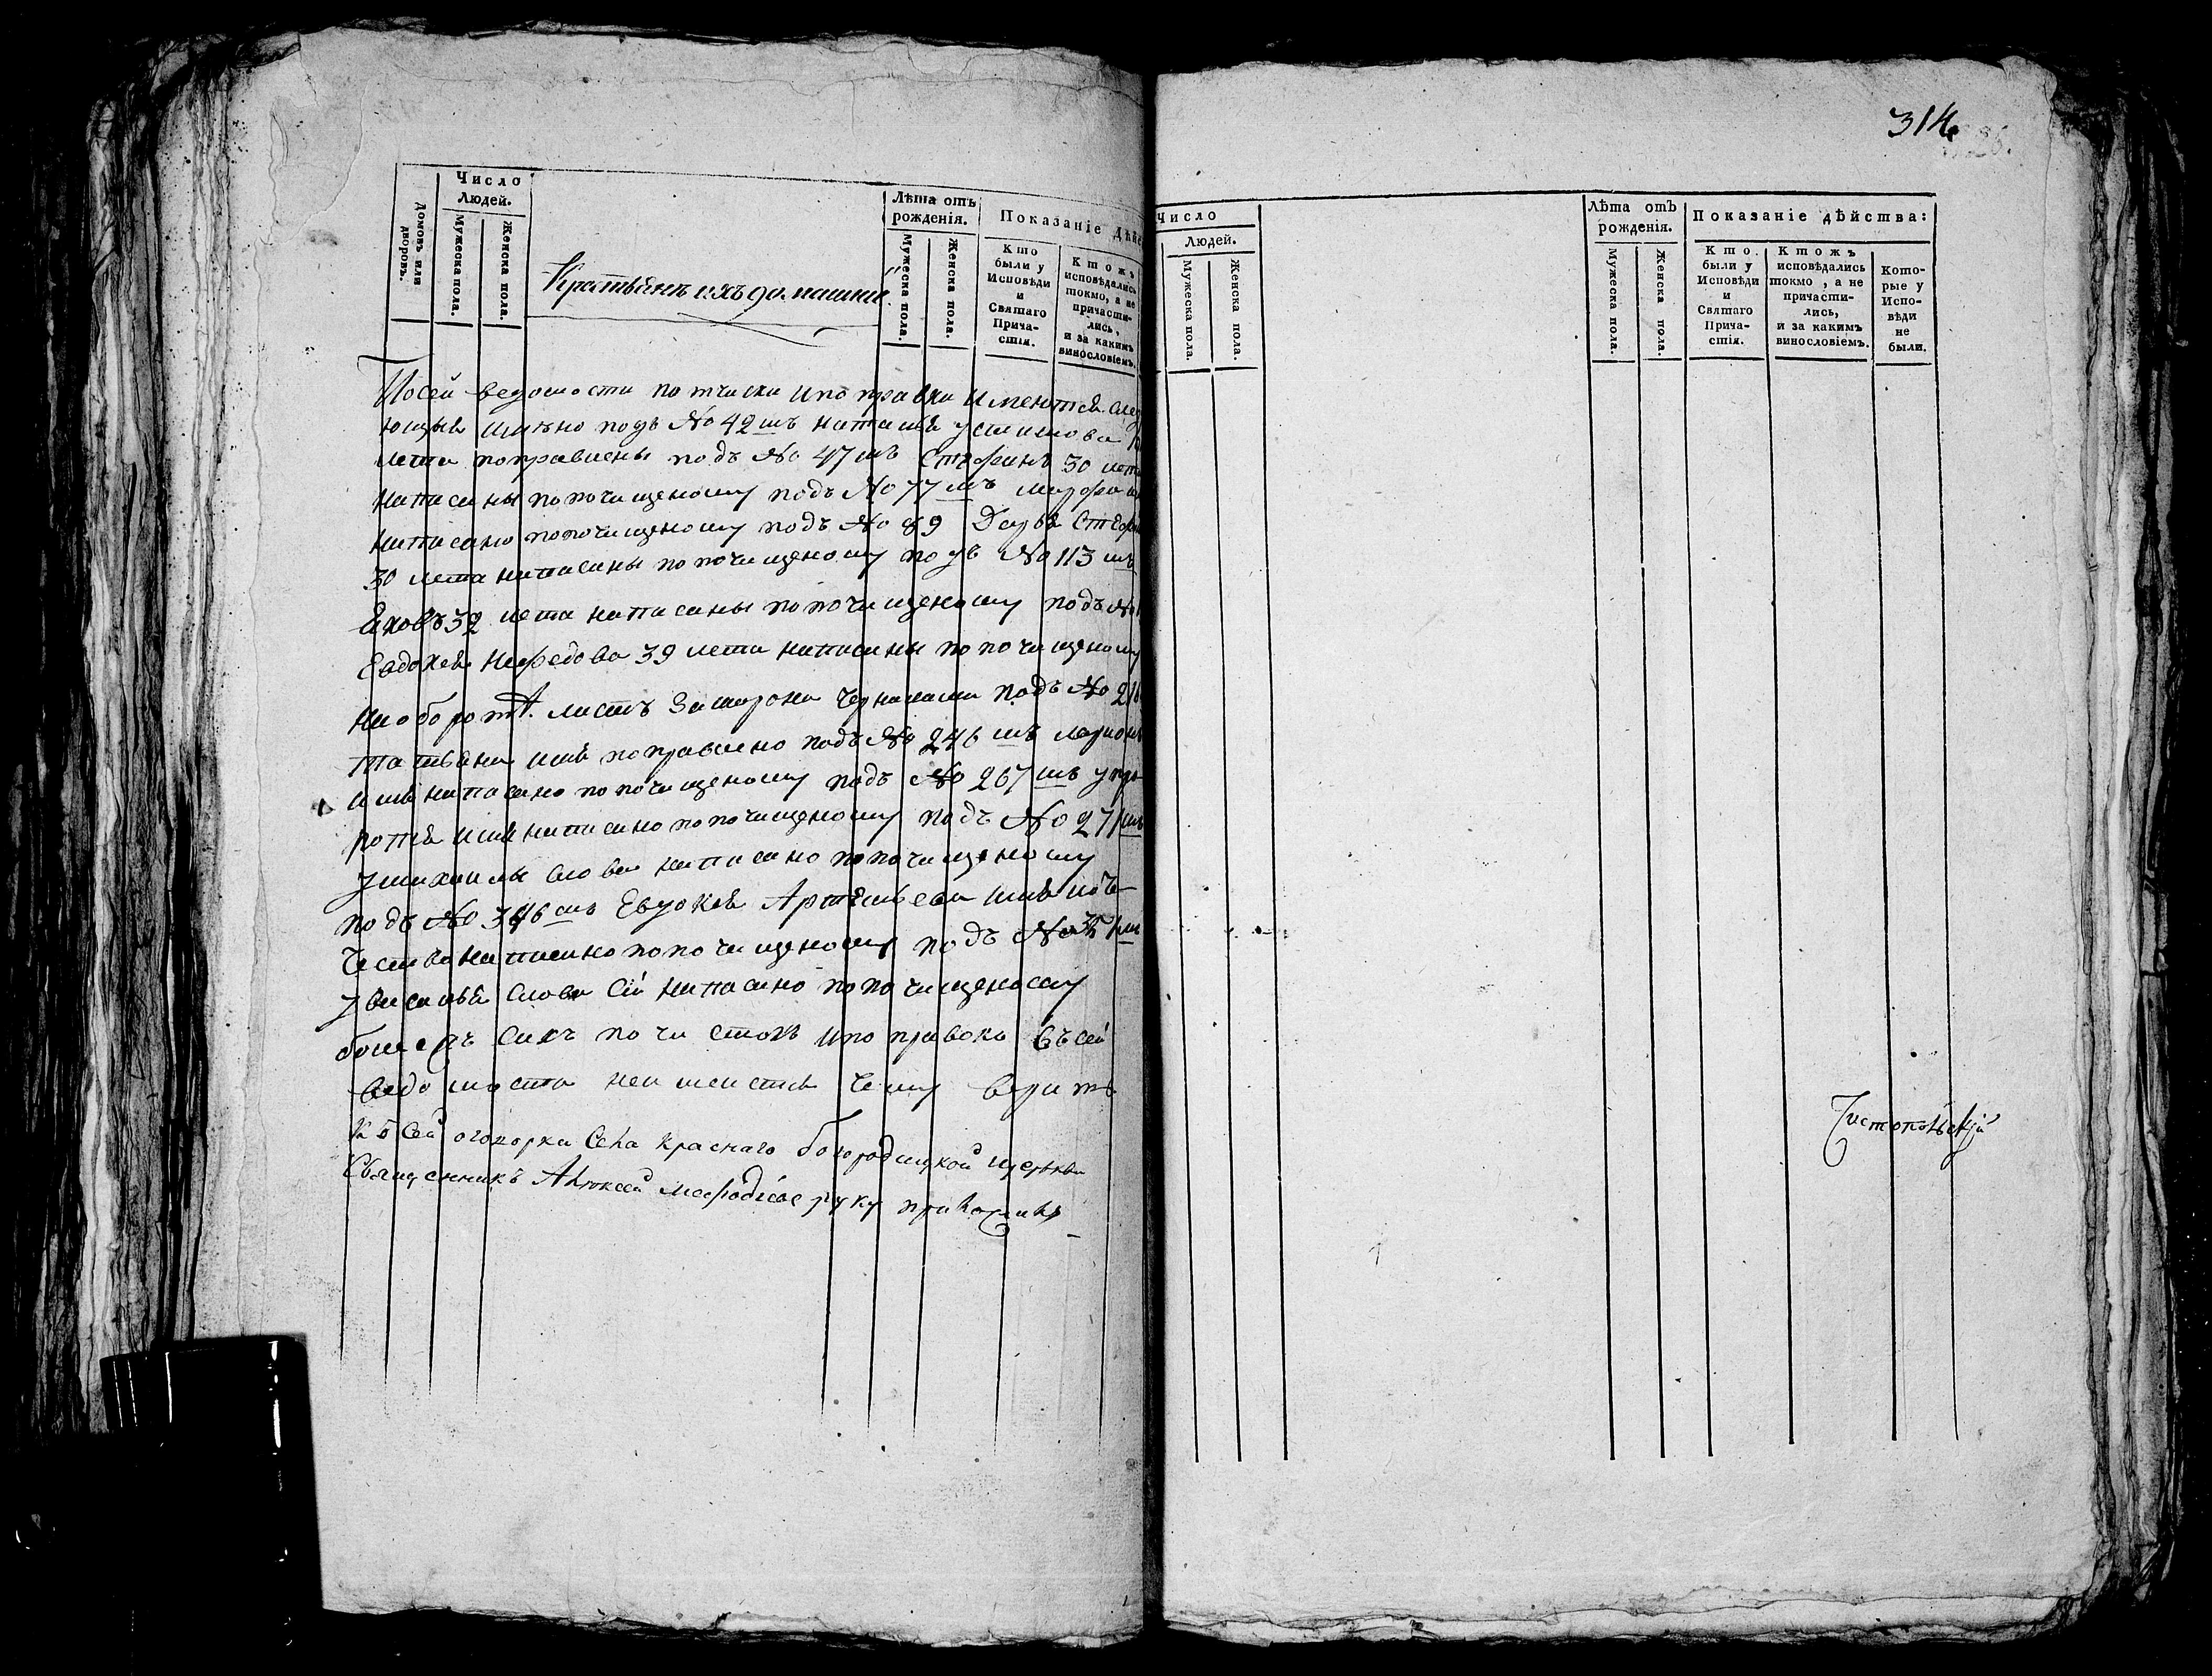 Домовъ или дворовъ.
Число Людей.
Мужеска пола.
Женска пола.
Крестьянъ ихъ домашнии
Лѣта отъ рожденія.
Мужеска пола.
Женска пола.
Показаніе дѣйс
Кто были у Исповѣди и Святаго Причастія.
Ктожъ исповѣдались токмо, а не причастились, и за какимъ винословіемъ.
По сей ведомости почиски и поправки имеются след
ющыя имянно подъ No 42 мъ наталья
лета поправлены подъ No 47 мъ Стефанъ 30 лета
написаны попочищеному подъ No 77 мъ марфа
написано попочищеному подъ No 89 Дарья Стефа
30 лета написаны попочищеному подъ No 113 мъ
Яковъ 32 лета написаны попочищеному подъ No
Евдокея Нефедова 39 лета написаны попочищеному
На оборотѣ листъ замарона чернилами подъ No 21
татьяна имя поправлено подъ No 246 мъ ларионъ
имя написано попочищеному подъ No 267 мъ
имя написано попочищеному подъ No 271 мъ
слова написано попочищеному
подъ No 346 мъ Евдокея Артемьева имя и отъ
чество написано попочищеному подъ No мъ
слова сіи написано попочищеному
более сихъ почистокъ и поправокъ въ сей
ведомости неимеится чему верить
Къ сей оговорки Села Краснаго богородицкой церькви
Священникъ Алексей мефодіевъ руку приложилъ
314
Число
Людей.
Мужеска пола.
Женска пола.
Лѣта отъ рожденія.
Мужеска пола.
Женска пола.
Показаніе дѣйства:
Кто были у Исповѣди и Святаго Причастія.
Ктожъ исповѣдались токмо, а не причастились, и за какимъ винословіемъ.
Которые у Исповѣди не были.
Чистопольскій